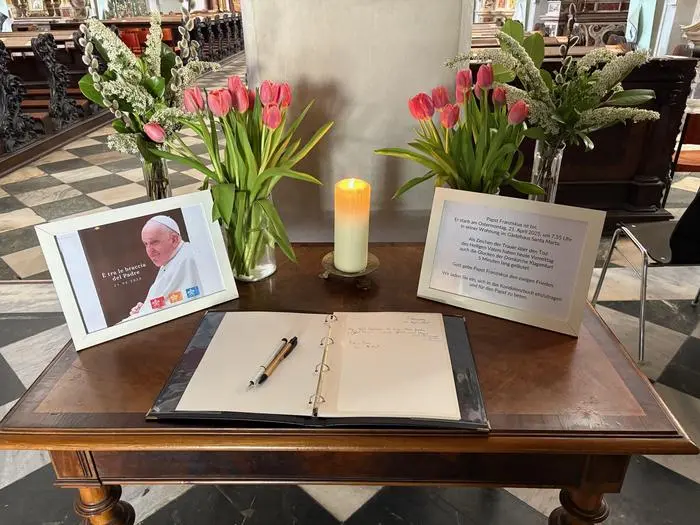 È tra le braccia
del Padre.
21.04.2025
Papst Franziskus ist tot.
Er starb am Ostermontag, 21. April 2025, um 7.35 Uhr
in seiner Wohnung im Gästehaus Santa Marta.
Als Zeichen der Trauer über den Tod
des Heiligen Vaters haben heute Vormittag
auch die Glocken der Domkirche Klagenfurt
5 Minuten lang geläutet.
Gott gebe Papst Franziskus den ewigen Frieden.
Wir laden Sie ein, sich in das Kondolenzbuch einzutragen
und für den Papst zu beten.